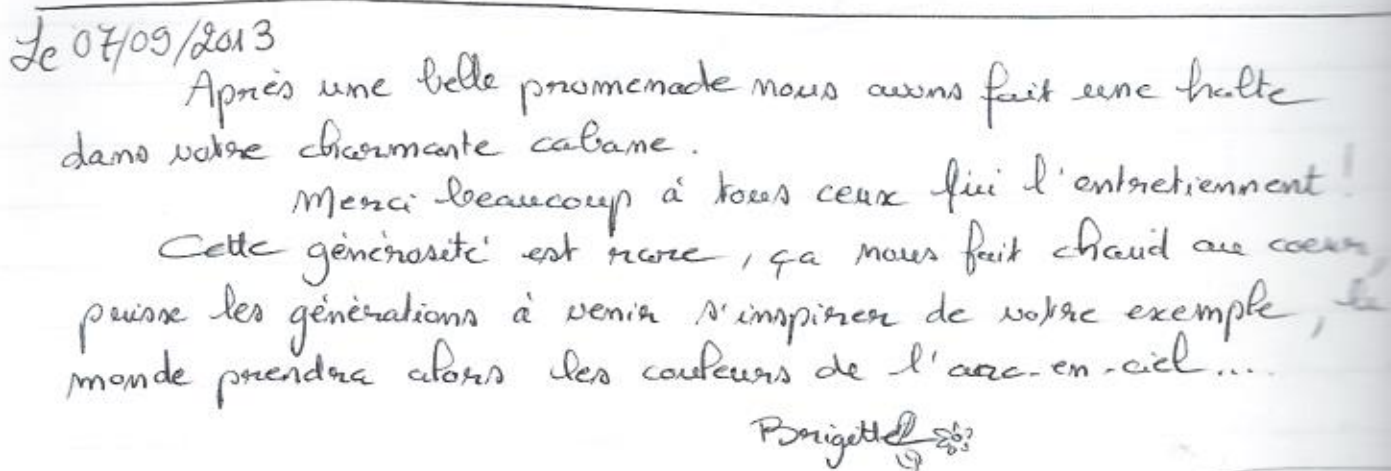 Le 07/09/2013
Après une belle promenade nous avons fait une halte
dans votre charmante cabane.
Merci beaucoup à tous ceux qui l'entretiennent !
Cette générosité est rare, ça nous fait chaud au coeur,
puisse les générations à venir s'inspirer de votre exemple, le
monde prendra alors les couleurs de l'arc-en-ciel....
Brigitte